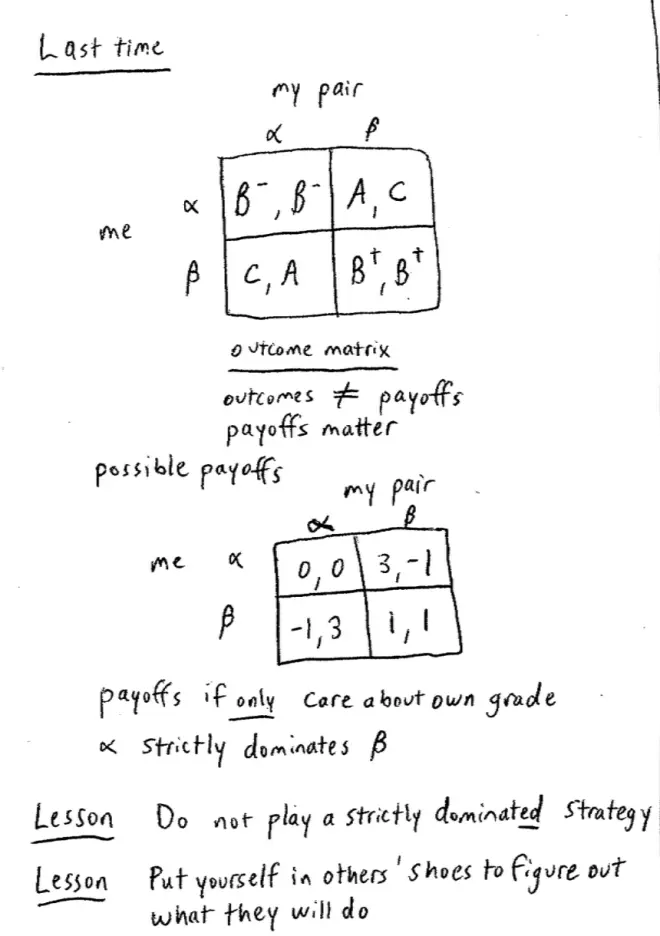 Last time
my pair
α β
me α B⁻, B⁻ A, C
β C, A B⁺, B⁺
outcome matrix
outcomes ≠ payoffs
payoffs matter
possible payoffs
my pair
α β
me α 0, 0 3, -1
β -1, 3 1, 1
payoffs if only care about own grade
α strictly dominates β
Lesson Do not play a strictly dominated strategy
Lesson Put yourself in others' shoes to figure out
what they will do